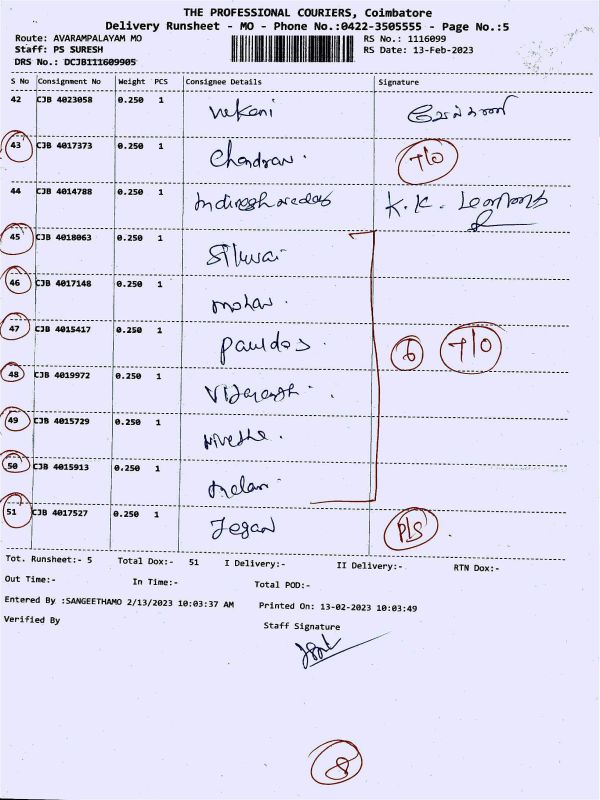 THE PROFESSIONAL COURIERS, Coimbatore
Delivery Runsheet - MO - Phone No.:0422-3505555 - Page No.:5
Route: AVARAMPALAYAM MO RS No.: 1116099
Staff: PS SURESH RS Date: 13-Feb-2023
DRS No.: DCJB111609905
S No Consignment No Weight PCS Consignee Details Signature
42 CJB 4023058 0.250 1
43 CJB 4017373 0.250 1 Chandran. T/O
44 CJB 4014788 0.250 1 K.K.
45 CJB 4018063 0.250 1
46 CJB 4017148 0.250 1 mohan.
47 CJB 4015417 0.250 1 Pauldos. 6 T/O
48 CJB 4019972 0.250 1
49 CJB 4015729 0.250 1
50 CJB 4015913 0.250 1
51 CJB 4017527 0.250 1 Jegan P/S
Tot. Runsheet:- 5 Total Dox:- 51 I Delivery:- II Delivery:- RTN Dox:-
Out Time:- In Time:- Total POD:-
Entered By :SANGEETHAMO 2/13/2023 10:03:37 AM Printed On: 13-02-2023 10:03:49
Verified By Staff Signature
8